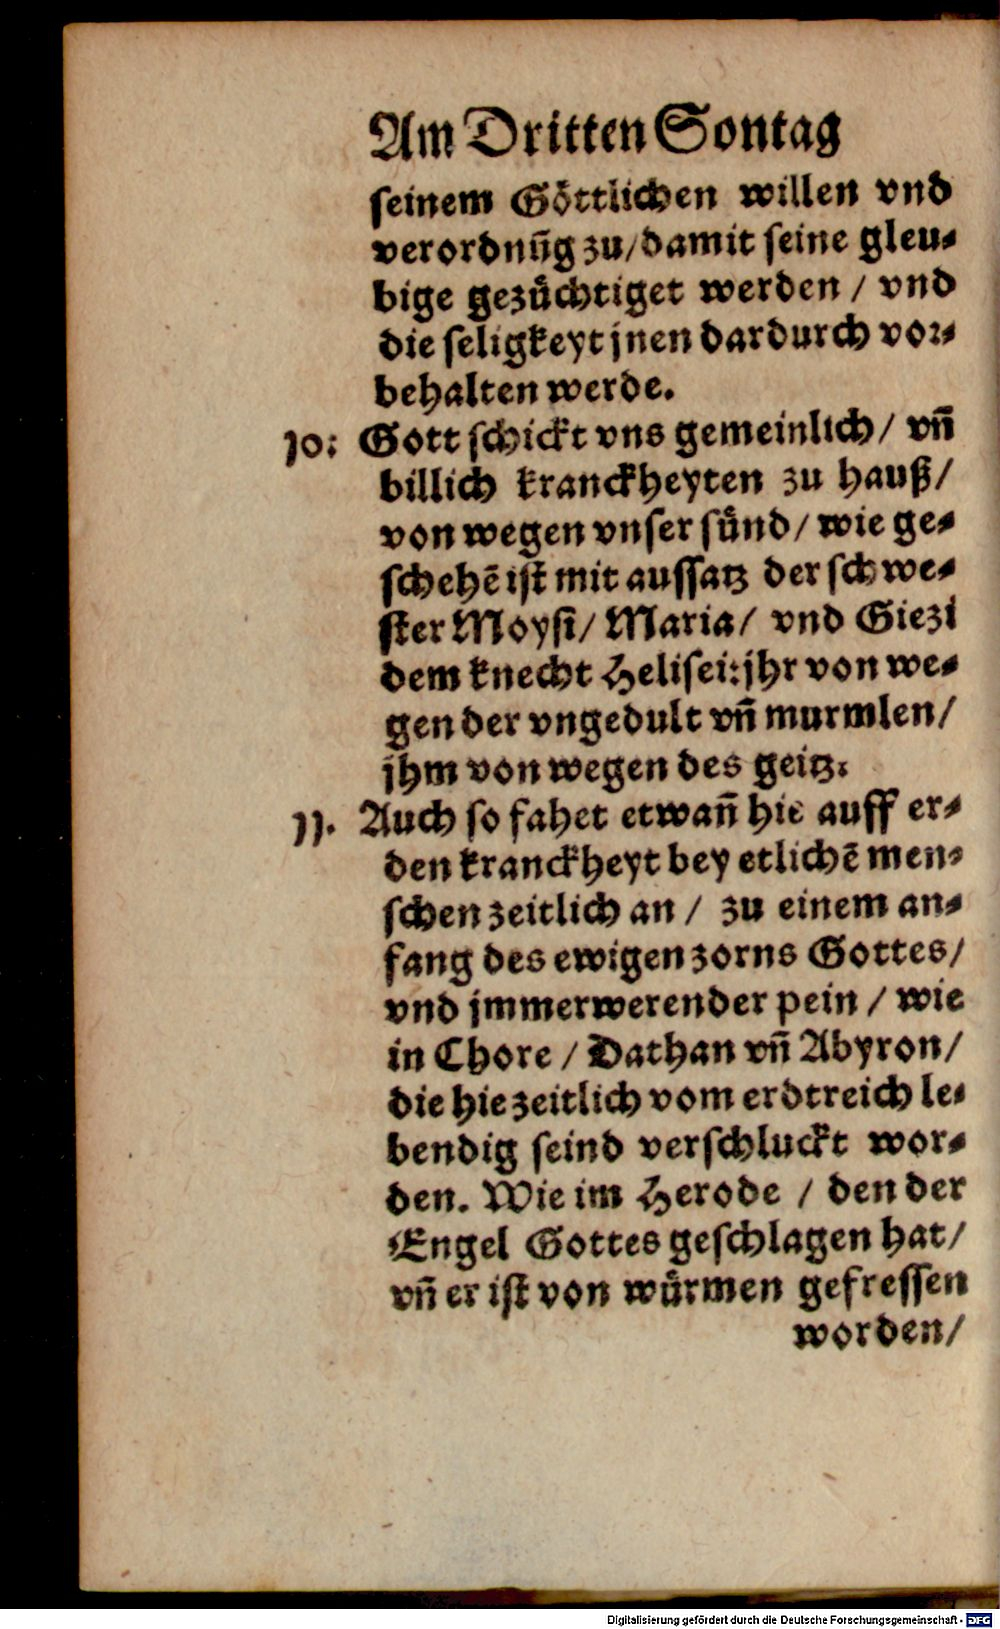 Am Dritten Sontag
seinem Göttlichen willen vnd
verordnūg zu/damit seine gleu-
bige gezüchtiget werden / vnd
die seligkeyt jnen dardurch vor-
behalten werde.
10: Gott schickt vns gemeinlich/ vn̄
billich kranckheyten zu hauß/
von wegen vnser sünd/ wie ge-
schehē ist mit aussatz der schwe-
ster Moysi/ Maria/ vnd Giezi
dem knecht Helisei: jhr von we-
gen der vngedult vn̄ murmlen/
jhm von wegen des geitz.
11. Auch so fahet etwan̄ hie auff er-
den kranckheyt bey etlichē men-
schen zeitlich an / zu einem an-
fang des ewigen zorns Gottes/
vnd jmmerwerender pein / wie
in Chore / Dathan vn̄ Abyron/
die hie zeitlich vom erdtreich le-
bendig seind verschluckt wor-
den. Wie im Herode / den der
Engel Gottes geschlagen hat/
vn̄ er ist von würmen gefressen
worden/
Digitalisierung gefördert durch die Deutsche Forschungsgemeinschaft - DFG